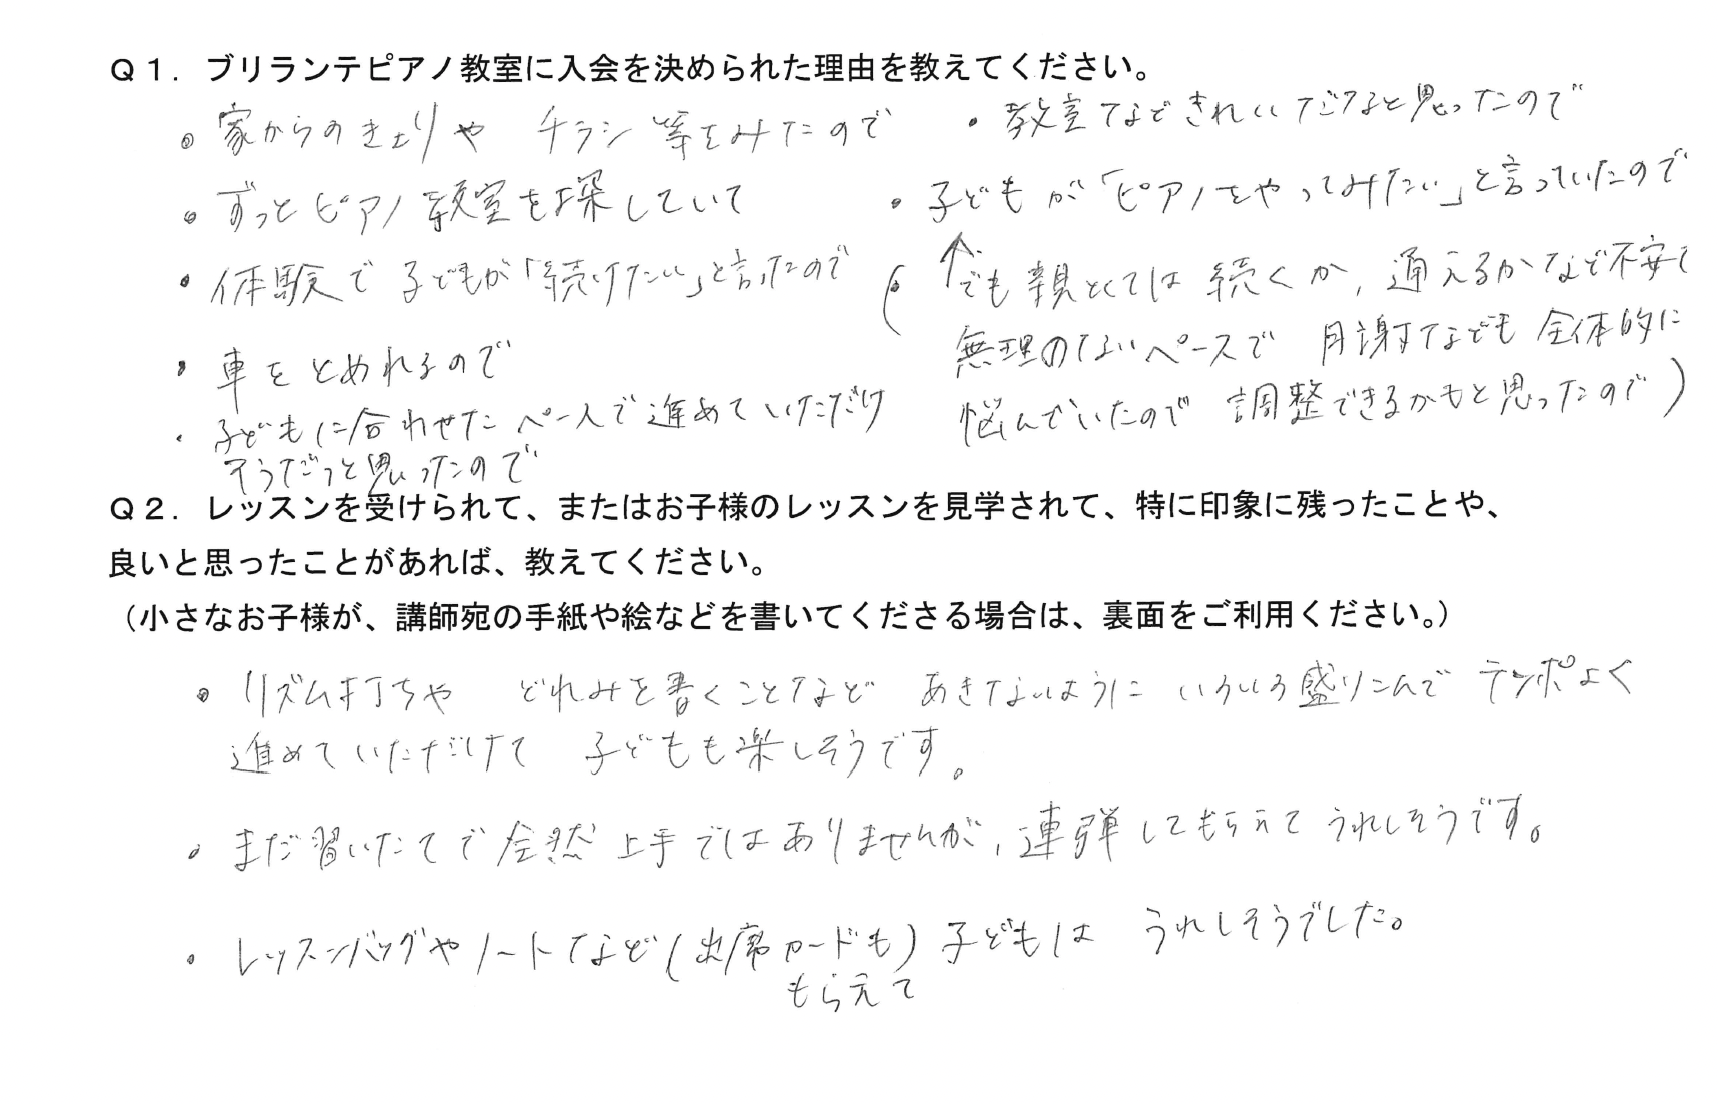 Ｑ１．ブリランテピアノ教室に入会を決められた理由を教えてください。
・家からのきょりや チラシ等をみたので
・ずっとピアノ教室を探していて
・体験で子どもが「続けたい」と言ったので
・車をとめれるので
・子どもに合わせたペースで進めていただけ
そうだっと思ったので
・教室などきれいだなと思ったので
・子どもが「ピアノをやってみたい」と言っていたので
(・↑でも親としては続くか、通えるかなど不安で
無理のないペースで 月謝なども全体的に
悩んでいたので 調整できるかもと思ったので)
Ｑ２．レッスンを受けられて、またはお子様のレッスンを見学されて、特に印象に残ったことや、
良いと思ったことがあれば、教えてください。
（小さなお子様が、講師宛の手紙や絵などを書いてくださる場合は、裏面をご利用ください。）
・リズム打ちや どれみを書くことなど あきないように いろいろ盛りこんで テンポよく
進めていただけて 子どもも楽しそうです。
・まだ習いたてで全然上手ではありませんが、連弾してもらえて うれしそうです。
・レッスンバッグやノートなど(出席カードも) 子どもは うれしそうでした。
もらえて